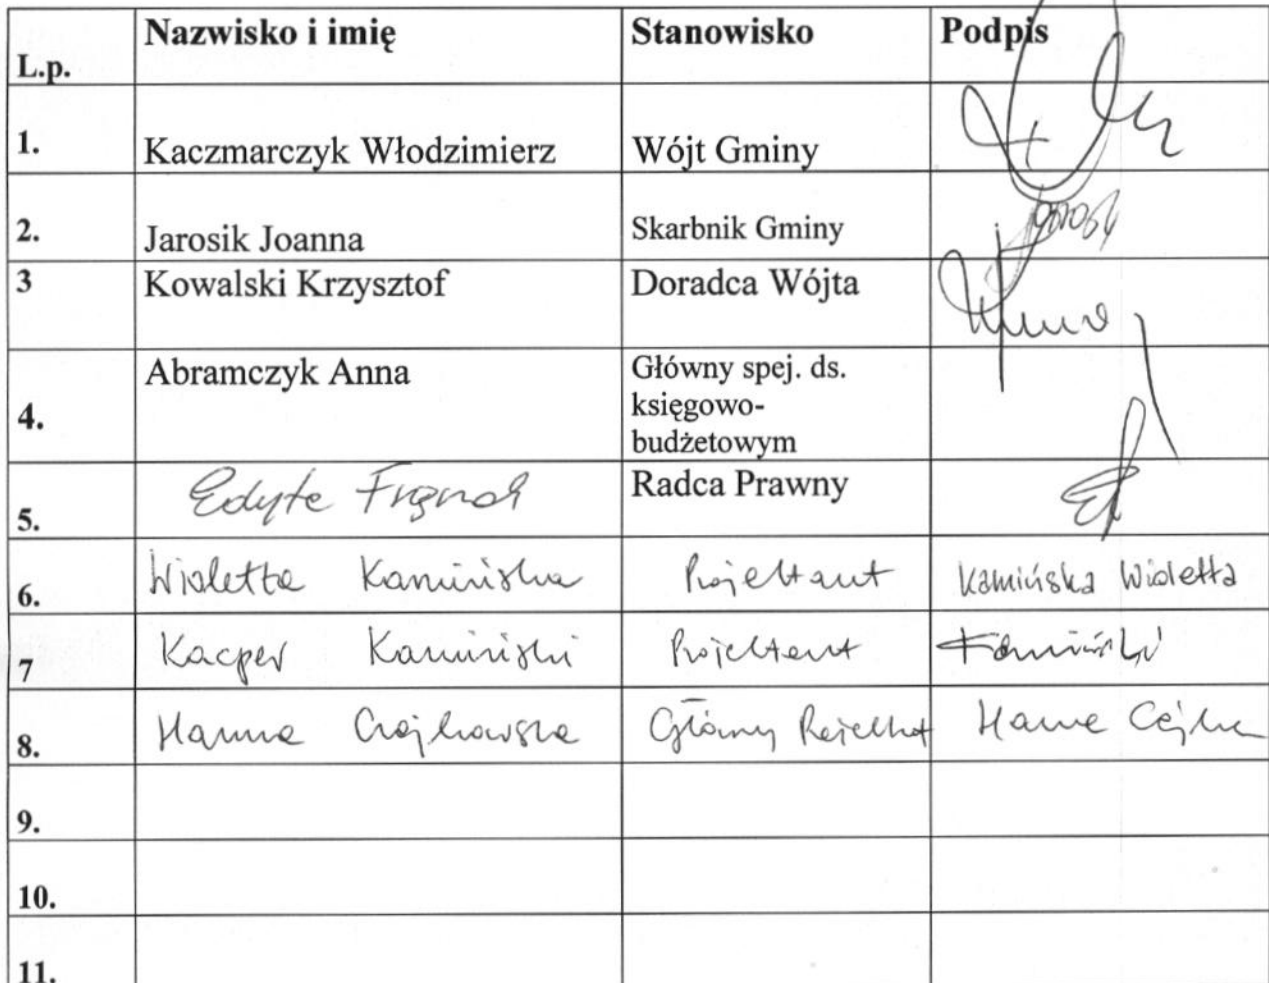 Nazwisko i imię Stanowisko Podpis
L.p.
1. Kaczmarczyk Włodzimierz Wójt Gminy
2. Jarosik Joanna Skarbnik Gminy
3 Kowalski Krzysztof Doradca Wójta
Abramczyk Anna Główny spej. ds.
4. księgowo-
budżetowym
5. Edyta Radca Prawny
6. Wioletta Kamińska Projektant Kamińska Wioletta
7 Kacper Kamiński Projektant Kamiński
8. Hanna Czajkowska Główny Projektant Hanna
9.
10.
11.